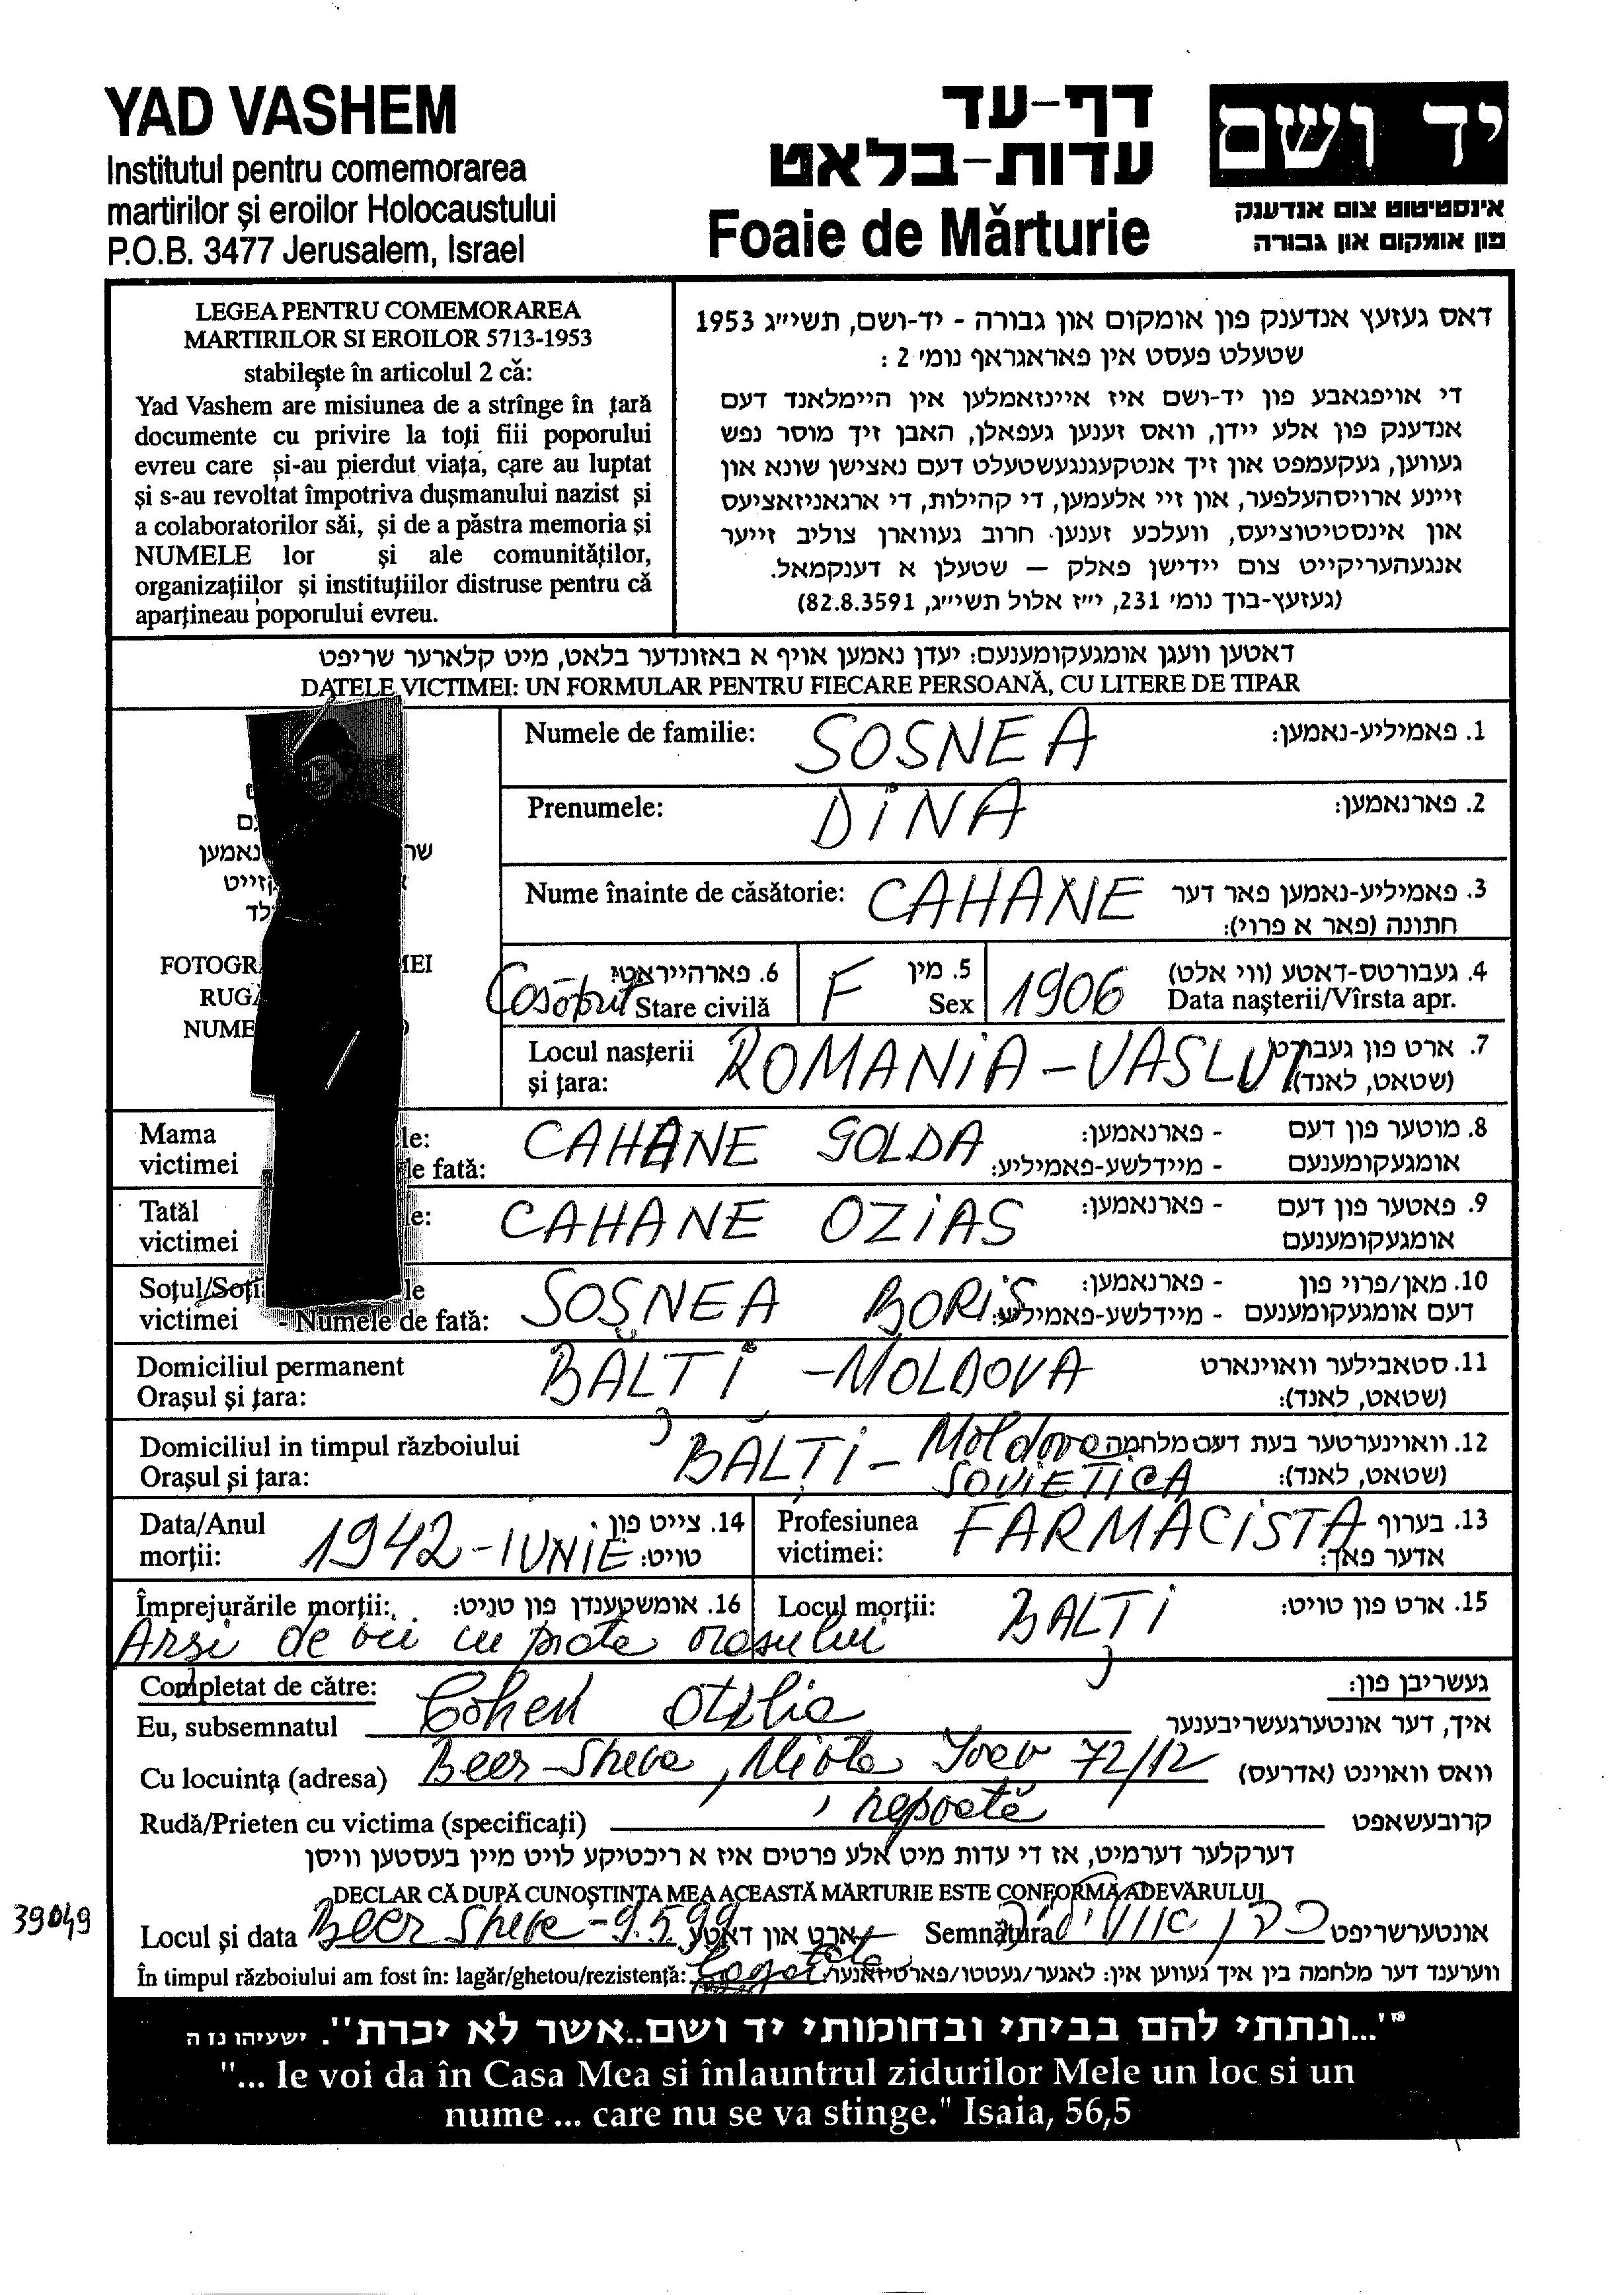 YAD VASHEM
Institutul pentru comemorarea
martirilor și eroilor Holocaustului
P.O.B. 3477 Jerusalem, Israel
דף-עד
עדות-בלאט
Foaie de Mărturie
יד ושם
אינסטיטוט צום אנדענק
פון אומקום און גבורה
LEGEA PENTRU COMEMORAREA
MARTIRILOR SI EROILOR 5713-1953
stabilește în articolul 2 că:
Yad Vashem are misiunea de a strînge în țară
documente cu privire la toți fiii poporului
evreu care și-au pierdut viața, care au luptat
și s-au revoltat împotriva dușmanului nazist și
a colaboratorilor săi, și de a păstra memoria și
NUMELE lor și ale comunităților,
organizațiilor și instituțiilor distruse pentru că
aparțineau poporului evreu.
דאס געזעץ אנדענק פון אומקום און גבורה - יד-ושם, תשי״ג 1953
שטעלט פעסט אין פאראגראף נומ׳ 2 :
די אויפגאבע פון יד-ושם איז איינזאמלען אין היימלאנד דעם
אנדענק פון אלע יידן, וואס זענען געפאלן, האבן זיך מוסר נפש
געווען, געקעמפט און זיך אנטקעגנגעשטעלט דעם נאצישן שונא און
זיינע ארויסהעלפער, און זיי אלעמען, די קהילות, די ארגאניזאציעס
און אינסטיטוציעס, וועלכע זענען חרוב געווארן צוליב זייער
אנגעהעריקייט צום יידישן פאלק — שטעלן א דענקמאל.
(געזעץ-בוך נומ׳ 231, י״ז אלול תשי״ג, 82.8.3591)
דאטען וועגן אומגעקומענעם: יעדן נאמען אויף א באזונדער בלאט, מיט קלארער שריפט
DATELE VICTIMEI: UN FORMULAR PENTRU FIECARE PERSOANĂ, CU LITERE DE TIPAR
Numele de familie: SOSNEA 1. פאמיליע-נאמען:
Prenumele: DINA 2. פארנאמען:
Nume înainte de căsătorie: CAHANE 3. פאמיליע-נאמען פאר דער
חתונה (פאר א פרוי):
FOTOGR MEI
RUGĂ
NUME
6. פארהייראט?
Stare civilă
F 5. מין
Sex
1906 4. געבורטס-דאטע (ווי אלט)
Data nașterii/Vîrsta apr.
Locul nașterii
și țara: ROMANIA - VASLUI 7. ארט פון געבורט
(שטאט, לאנד):
Mama
victimei le:
le fată: CAHANE GOLDA 8. מוטער פון דעם - פארנאמען:
אומגעקומענעם - מיידלשע-פאמיליע:
Tatăl
victimei le: CAHANE OZIAS 9. פאטער פון דעם - פארנאמען:
אומגעקומענעם
Soțul/Soția le
victimei - Numele de fată: SOȘNEA BORIS 10. מאן/פרוי פון - פארנאמען:
דעם אומגעקומענעם - מיידלשע-פאמיליע:
Domiciliul permanent
Orașul și țara: BALȚI - MOLDOVA 11. סטאבילער וואוינארט
(שטאט, לאנד):
Domiciliul in timpul războiului
Orașul și țara: BĂLȚI - Moldova
SOVIETICA 12. וואוינערטער בעת דעם מלחמה
(שטאט, לאנד):
Data/Anul
morții: 1942 - IUNIE 14. צייט פון
טויט:
Profesiunea
victimei: FARMACISTA 13. בערוף
אדער פאך:
Împrejurările morții: 16. אומשטענדן פון טויט:
Arși de vii cu piata orasului
Locul morții: BALȚI 15. ארט פון טויט:
Completat de către: געשריבן פון:
Eu, subsemnatul Cohen Otilia איך, דער אונטערגעשריבענער
Cu locuința (adresa) Beer-Sheva, Yoav 72/12 וואס וואוינט (אדרעס)
Rudă/Prieten cu victima (specificați) nepoată קרובעשאפט
דערקלער דערמיט, אז די עדות מיט אלע פרטים איז א ריכטיקע לויט מיין בעסטען וויסן
DECLAR CĂ DUPĂ CUNOȘTINȚA MEA ACEASTĂ MĂRTURIE ESTE CONFORMĂ ADEVĂRULUI
39049
Locul și data Beer Sheva - 9.5.99 ארט און דאטע Semnătura כהן אוטיליה אונטערשריפט
În timpul războiului am fost în: lagăr/ghetou/rezistență: ווערענד דער מלחמה בין איך געווען אין: לאגער/געטטו/פארטיזאנער:
"...ונתתי להם בביתי ובחומותי יד ושם..אשר לא יכרת". ישעיהו נו ה
"... le voi da în Casa Mea si înlauntrul zidurilor Mele un loc si un
nume ... care nu se va stinge." Isaia, 56,5